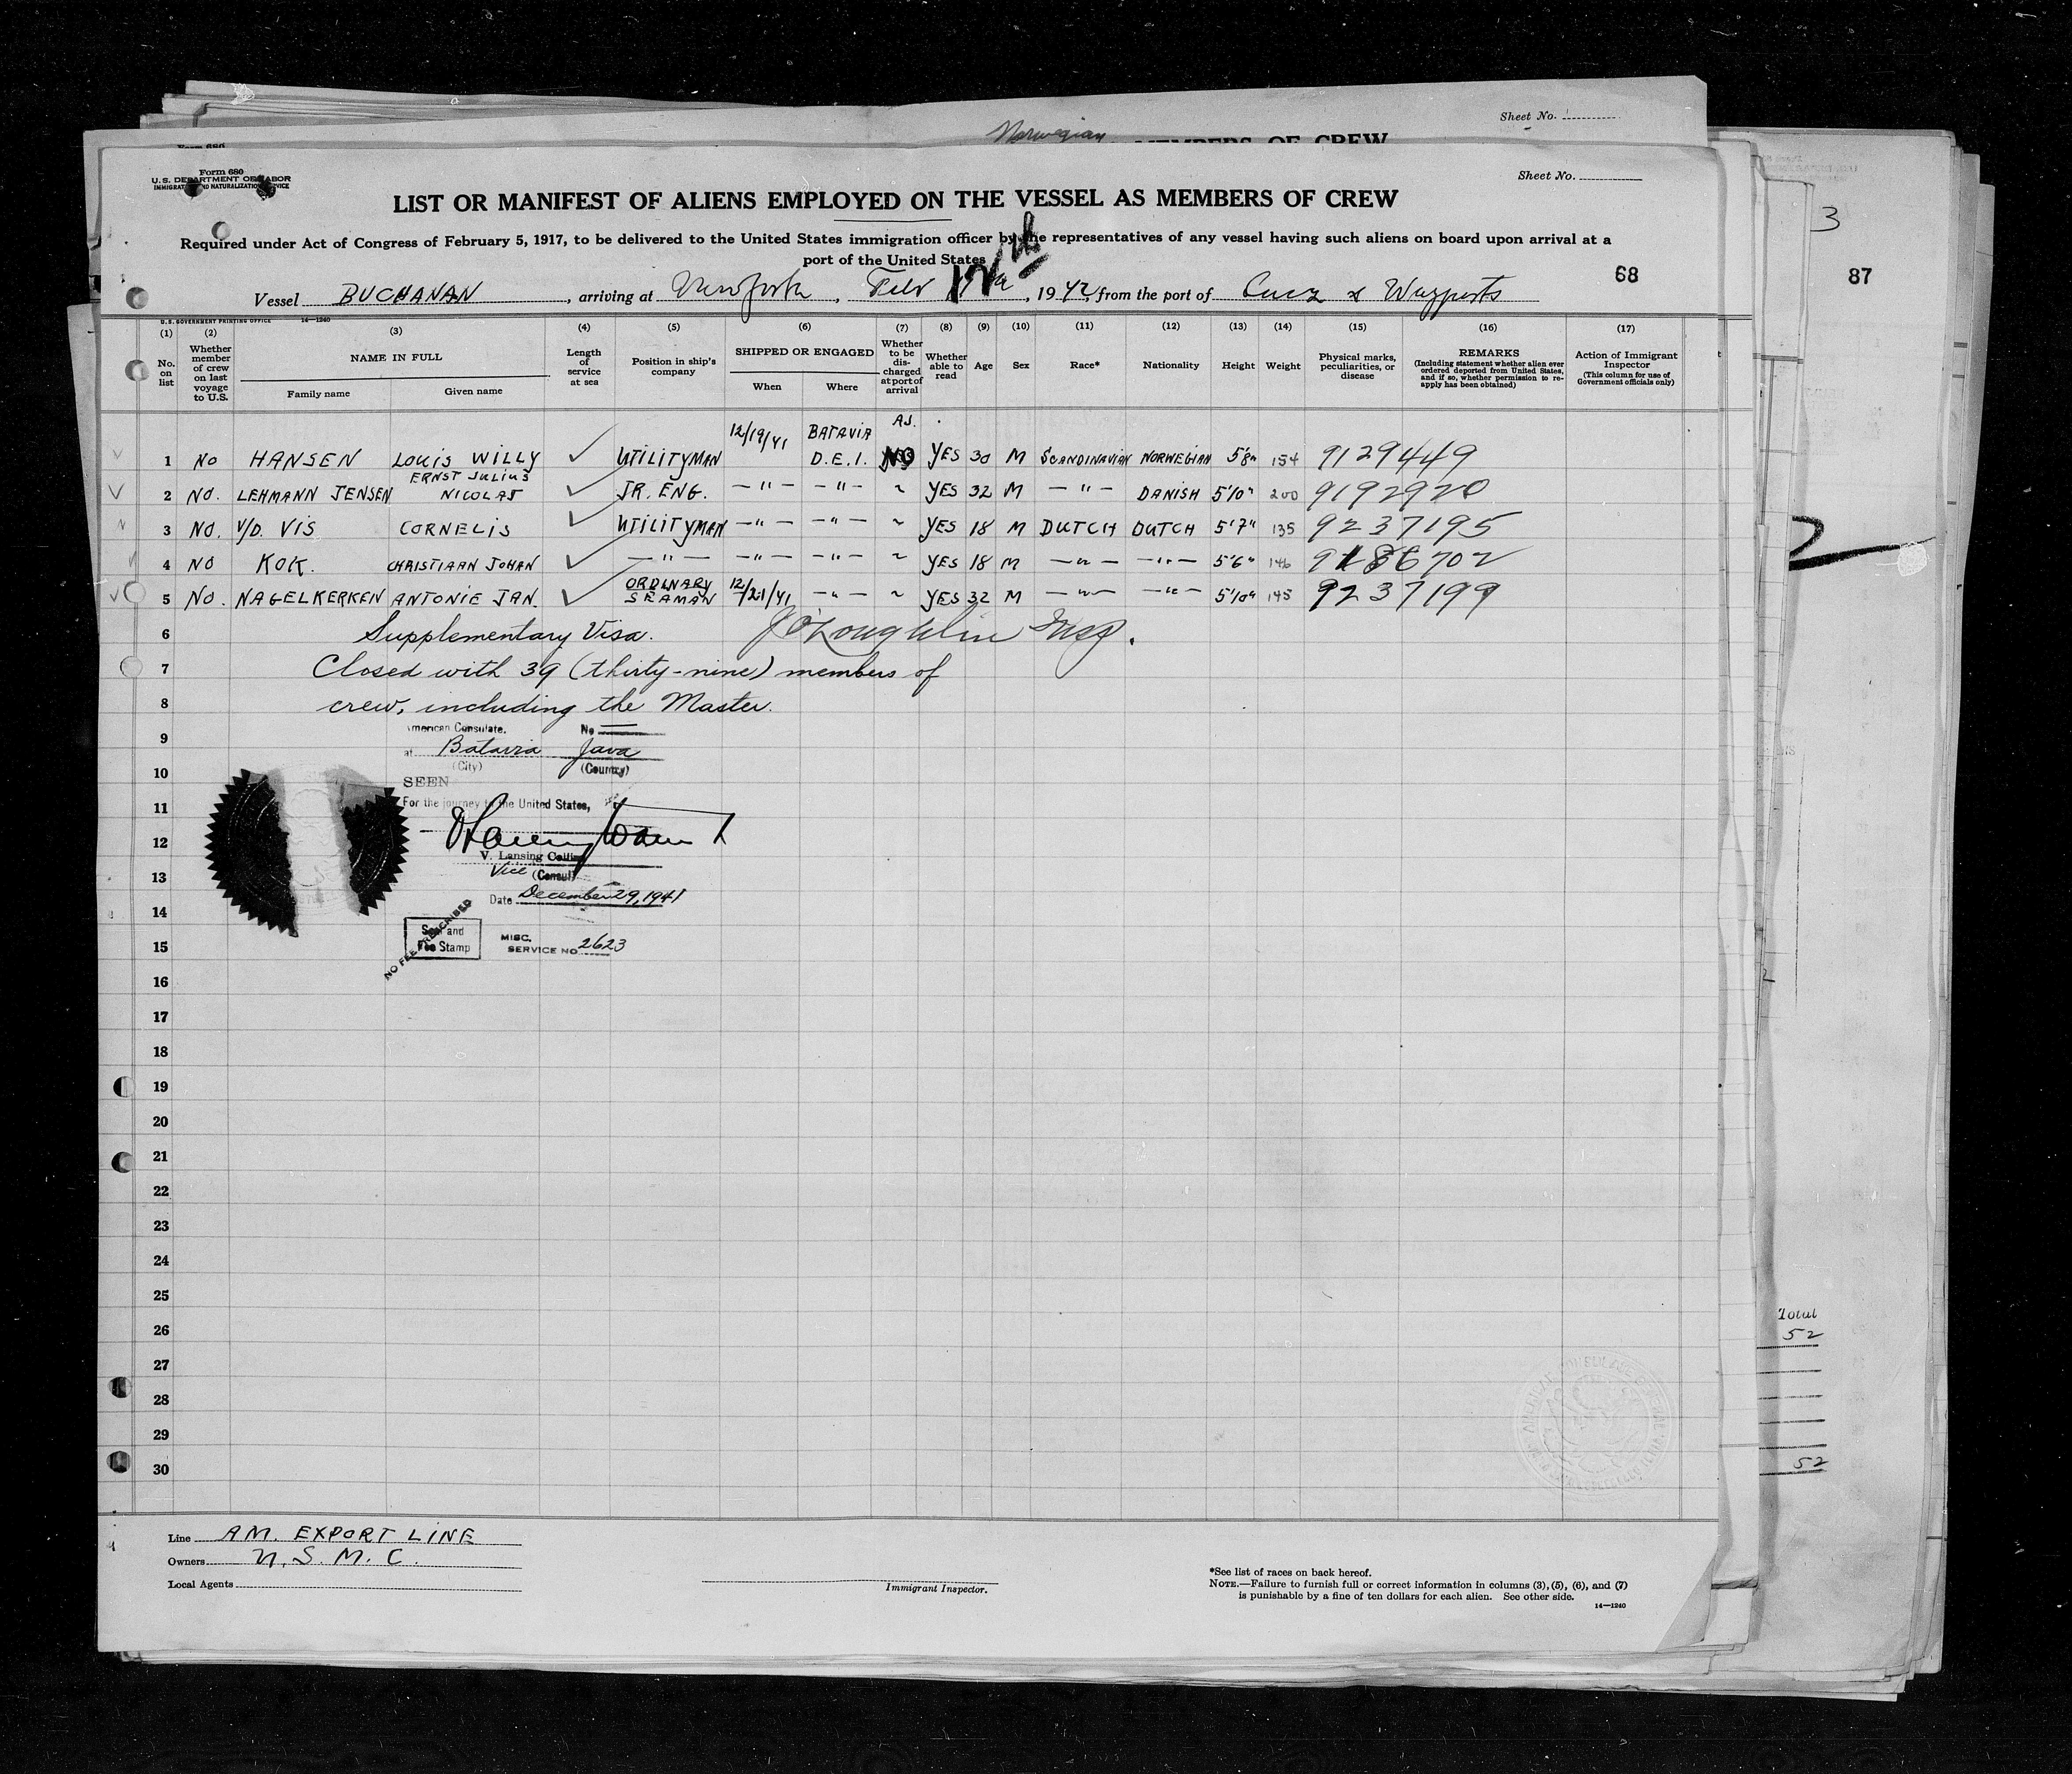 Sheet No.
Norwegian
MEMBERS OF CREW
Form 680
U. S. DEPARTMENT OF LABOR
IMMIGRATION AND NATURALIZATION SERVICE
Sheet No.
LIST OR MANIFEST OF ALIENS EMPLOYED ON THE VESSEL AS MEMBERS OF CREW
Required under Act of Congress of February 5, 1917, to be delivered to the United States immigration officer by the representatives of any vessel having such aliens on board upon arrival at a
port of the United States
68
87
3
Vessel BUCHANAN, arriving at New York, Feb 17th, 1942, from the port of Suez & Wayports
U. S. GOVERNMENT PRINTING OFFICE 14—1240
(1) (2) (3) (4) (5) (6) (7) (8) (9) (10) (11) (12) (13) (14) (15) (16) (17)
No. on list
Whether member of crew on last voyage to U.S.
NAME IN FULL
Family name Given name
Length of service at sea
Position in ship's company
SHIPPED OR ENGAGED
When Where
Whether to be discharged at port of arrival
Whether able to read
Age
Sex
Race*
Nationality
Height
Weight
Physical marks, peculiarities, or disease
REMARKS
(Including statement whether alien ever ordered deported from United States, and if so, whether permission to reapply has been obtained)
Action of Immigrant Inspector
(This column for use of Government officials only)
1 NO HANSEN LOUIS WILLY UTILITYMAN 12/19/41 BATAVIA D.E.I. NO YES 30 M SCANDINAVIAN NORWEGIAN 5'8" 154 9129449
2 NO. LEHMANN JENSEN ERNST JULIUS NICOLAJ JR. ENG. —"— —"— ~ YES 32 M —"— DANISH 5'10" 200 9192920
3 NO. V/D. VIS CORNELIS UTILITYMAN —"— —"— ~ YES 18 M DUTCH DUTCH 5'7" 135 9237195
4 NO KOK. CHRISTIAAN JOHAN —"— —"— —"— ~ YES 18 M —"— —"— 5'6" 146
5 NO. NAGELKERKEN ANTONIE JAN. ORDINARY SEAMAN 12/21/41 —"— ~ YES 32 M —"— —"— 5'10" 145 9237199
6 Supplementary Visa. J O'Loughlin Insp.
7 Closed with 39 (thirty-nine) members of
8 crew, including the Master.
American Consulate. No
9
at Batavia Java
(City) (Country)
10
SEEN
11 For the journey to the United States,
12
V. Lansing Collins
13 Vice (Consul)
Date December 29, 1941
14
Seal and
Fee Stamp
NO FEE PRESCRIBED
15 MISC. SERVICE NO. 2623
16
17
18
19
20
21
22
23
24
25
26
27
28
29
30
Total
52
52
Line AM. EXPORT LINE
Owners U. S. M. C.
Local Agents
Immigrant Inspector.
*See list of races on back hereof.
NOTE.—Failure to furnish full or correct information in columns (3), (5), (6), and (7)
is punishable by a fine of ten dollars for each alien. See other side.
14—1240